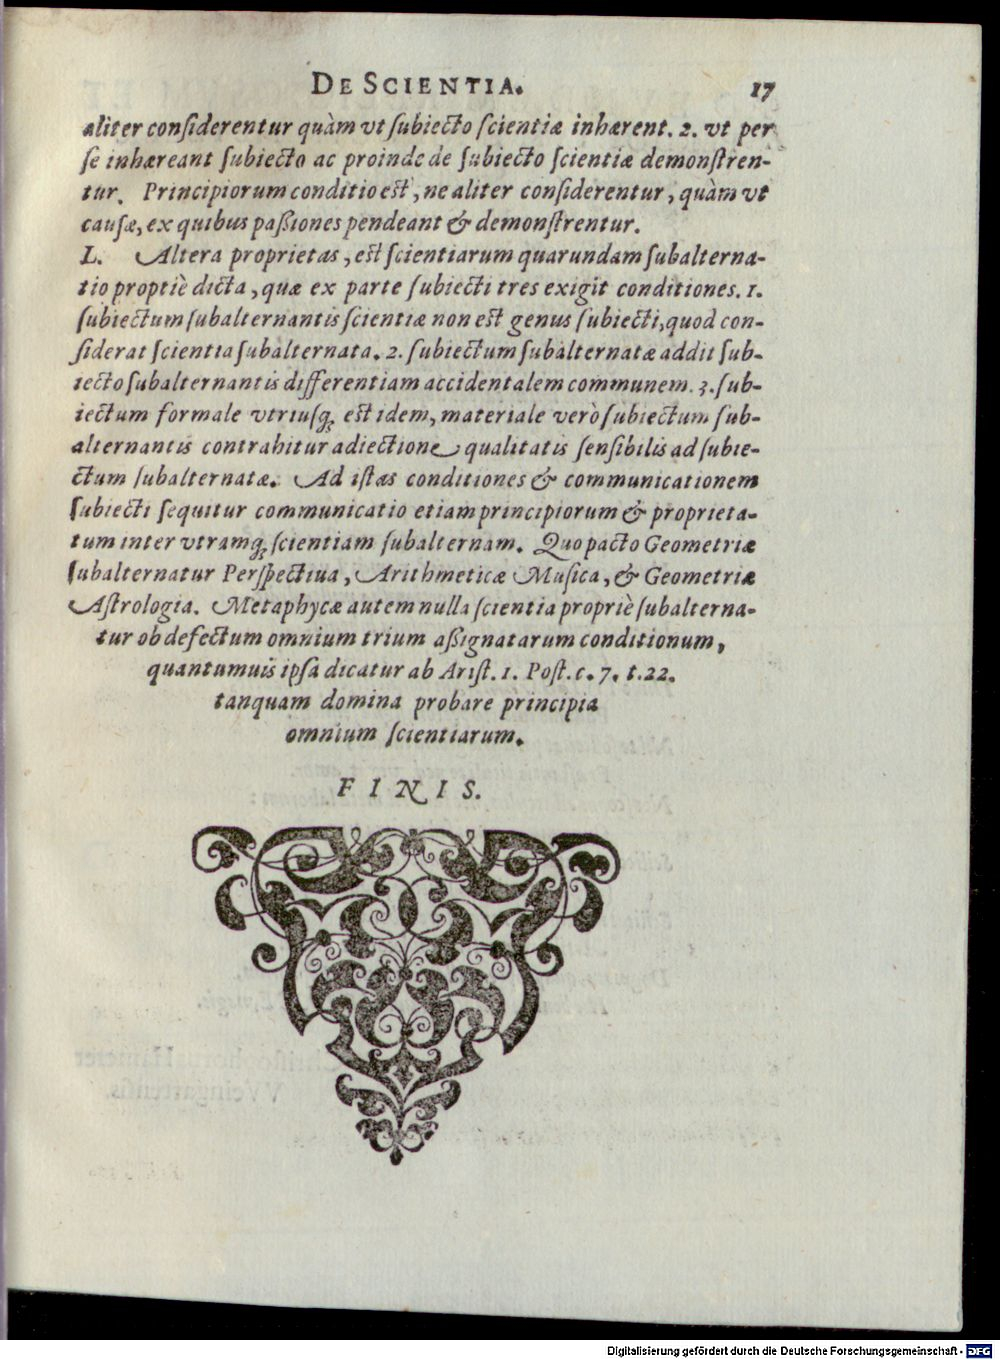 DE SCIENTIA. 17
aliter conſiderentur quàm vt ſubiecto ſcientiæ inhærent. 2. vt per
ſe inhæreant ſubiecto ac proinde de ſubiecto ſcientiæ demonſtren-
tur. Principiorum conditio eſt, ne aliter conſiderentur, quàm vt
cauſæ, ex quibus paßiones pendeant & demonſtrentur.
L. Altera proprietas, eſt ſcientiarum quarundam ſubalterna-
tio propriè dicta, quæ ex parte ſubiecti tres exigit conditiones. 1.
ſubiectum ſubalternantis ſcientiæ non eſt genus ſubiecti, quod con-
ſiderat ſcientia ſubalternata. 2. ſubiectum ſubalternatæ addit ſub-
iecto ſubalternantis differentiam accidentalem communem. 3. ſub-
iectum formale vtriuſq; eſt idem, materiale verò ſubiectum ſub-
alternantis contrahitur adiectione qualitatis ſenſibilis ad ſubie-
ctum ſubalternatæ. Ad iſtas conditiones & communicationem
ſubiecti ſequitur communicatio etiam principiorum & proprieta-
tum inter vtramq; ſcientiam ſubalternam. Quo pacto Geometriæ
ſubalternatur Perſpectiua, Arithmeticæ Muſica, & Geometriæ
Aſtrologia. Metaphycæ autem nulla ſcientia propriè ſubalterna-
tur ob defectum omnium trium aßignatarum conditionum,
quantumuis ipſa dicatur ab Ariſt. 1. Poſt. c. 7. t. 22.
tanquam domina probare principia
omnium ſcientiarum.
FINIS.
Digitalisierung gefördert durch die Deutsche Forschungsgemeinschaft - DFG